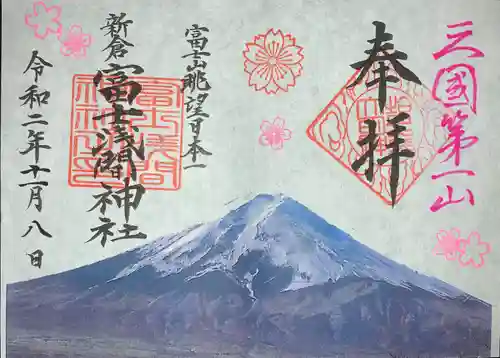 三国第一山
奉拝
富士山眺望日本一
新倉
富士浅間神社
令和二年十一月八日